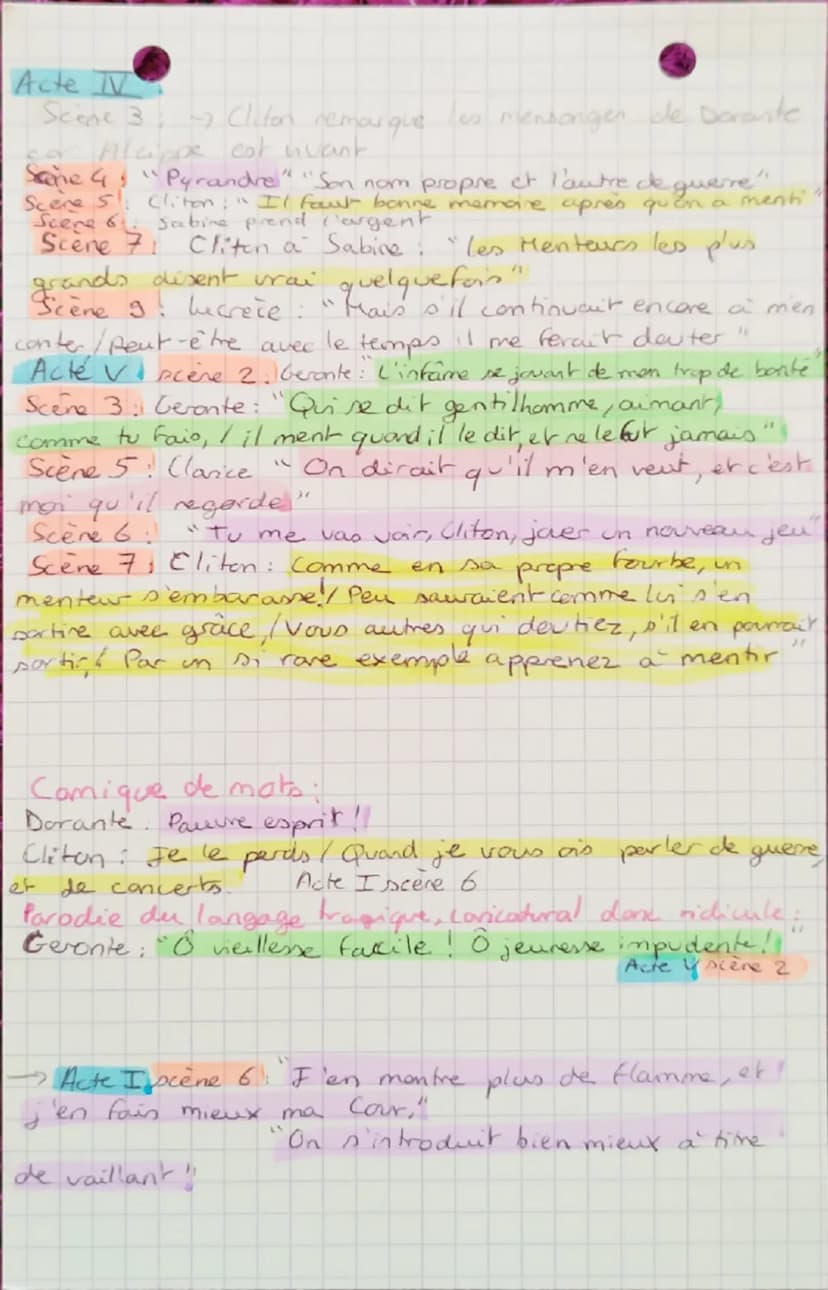 Acte IV
Scène 3 : → Cliton remarque les mensonges de Dorante
car Alcippe est vivant
Scène 4 : "Pyrandre" "Son nom propre et l'autre de guerre"
Scène 5 : Cliton : "Il faut bonne memoire après qu'on a menti"
Scène 6 : Sabine prend l'argent
Scène 7 : Cliton à Sabine : "Les Menteurs les plus
grands disent vrai quelquefois"
Scène 9 : Lucrèce : "Mais s'il continuait encore à m'en
conter / Peut-être avec le temps il me ferait douter"
Acte V scène 2 : Geronte : "L'infâme se jouant de mon trop de bonté"
Scène 3 : Geronte : "Qui se dit gentilhomme, aimant,
comme tu fais, / il ment quand il le dit, et ne le fut jamais"
Scène 5 : Clarice "On dirait qu'il m'en veut, et c'est
moi qu'il regarde"
Scène 6 : "Tu me vas voir, Cliton, jouer un nouveau jeu"
Scène 7 : Cliton : Comme en sa propre fourbe, un
menteur s'embarasse ! / Peu sauraient comme lui s'en
sortire avec grâce, / Vous autres qui doutiez, s'il en pourrait
sortir, / Par un si rare exemple apprenez à mentir"
Comique de mots :
Dorante : Pauvre esprit !
Cliton : Je le perds / Quand je vous ois parler de guerre,
et de concerts. Acte I scène 6
Parodie du langage tragique, caricatural donc ridicule :
Geronte : "Ô vieillesse facile ! Ô jeunesse impudente !"
Acte V scène 2
→ Acte I, scène 6 : "J'en montre plus de flamme, et
j'en fais mieux ma Cour."
"On s'introduit bien mieux à titre
de vaillant"